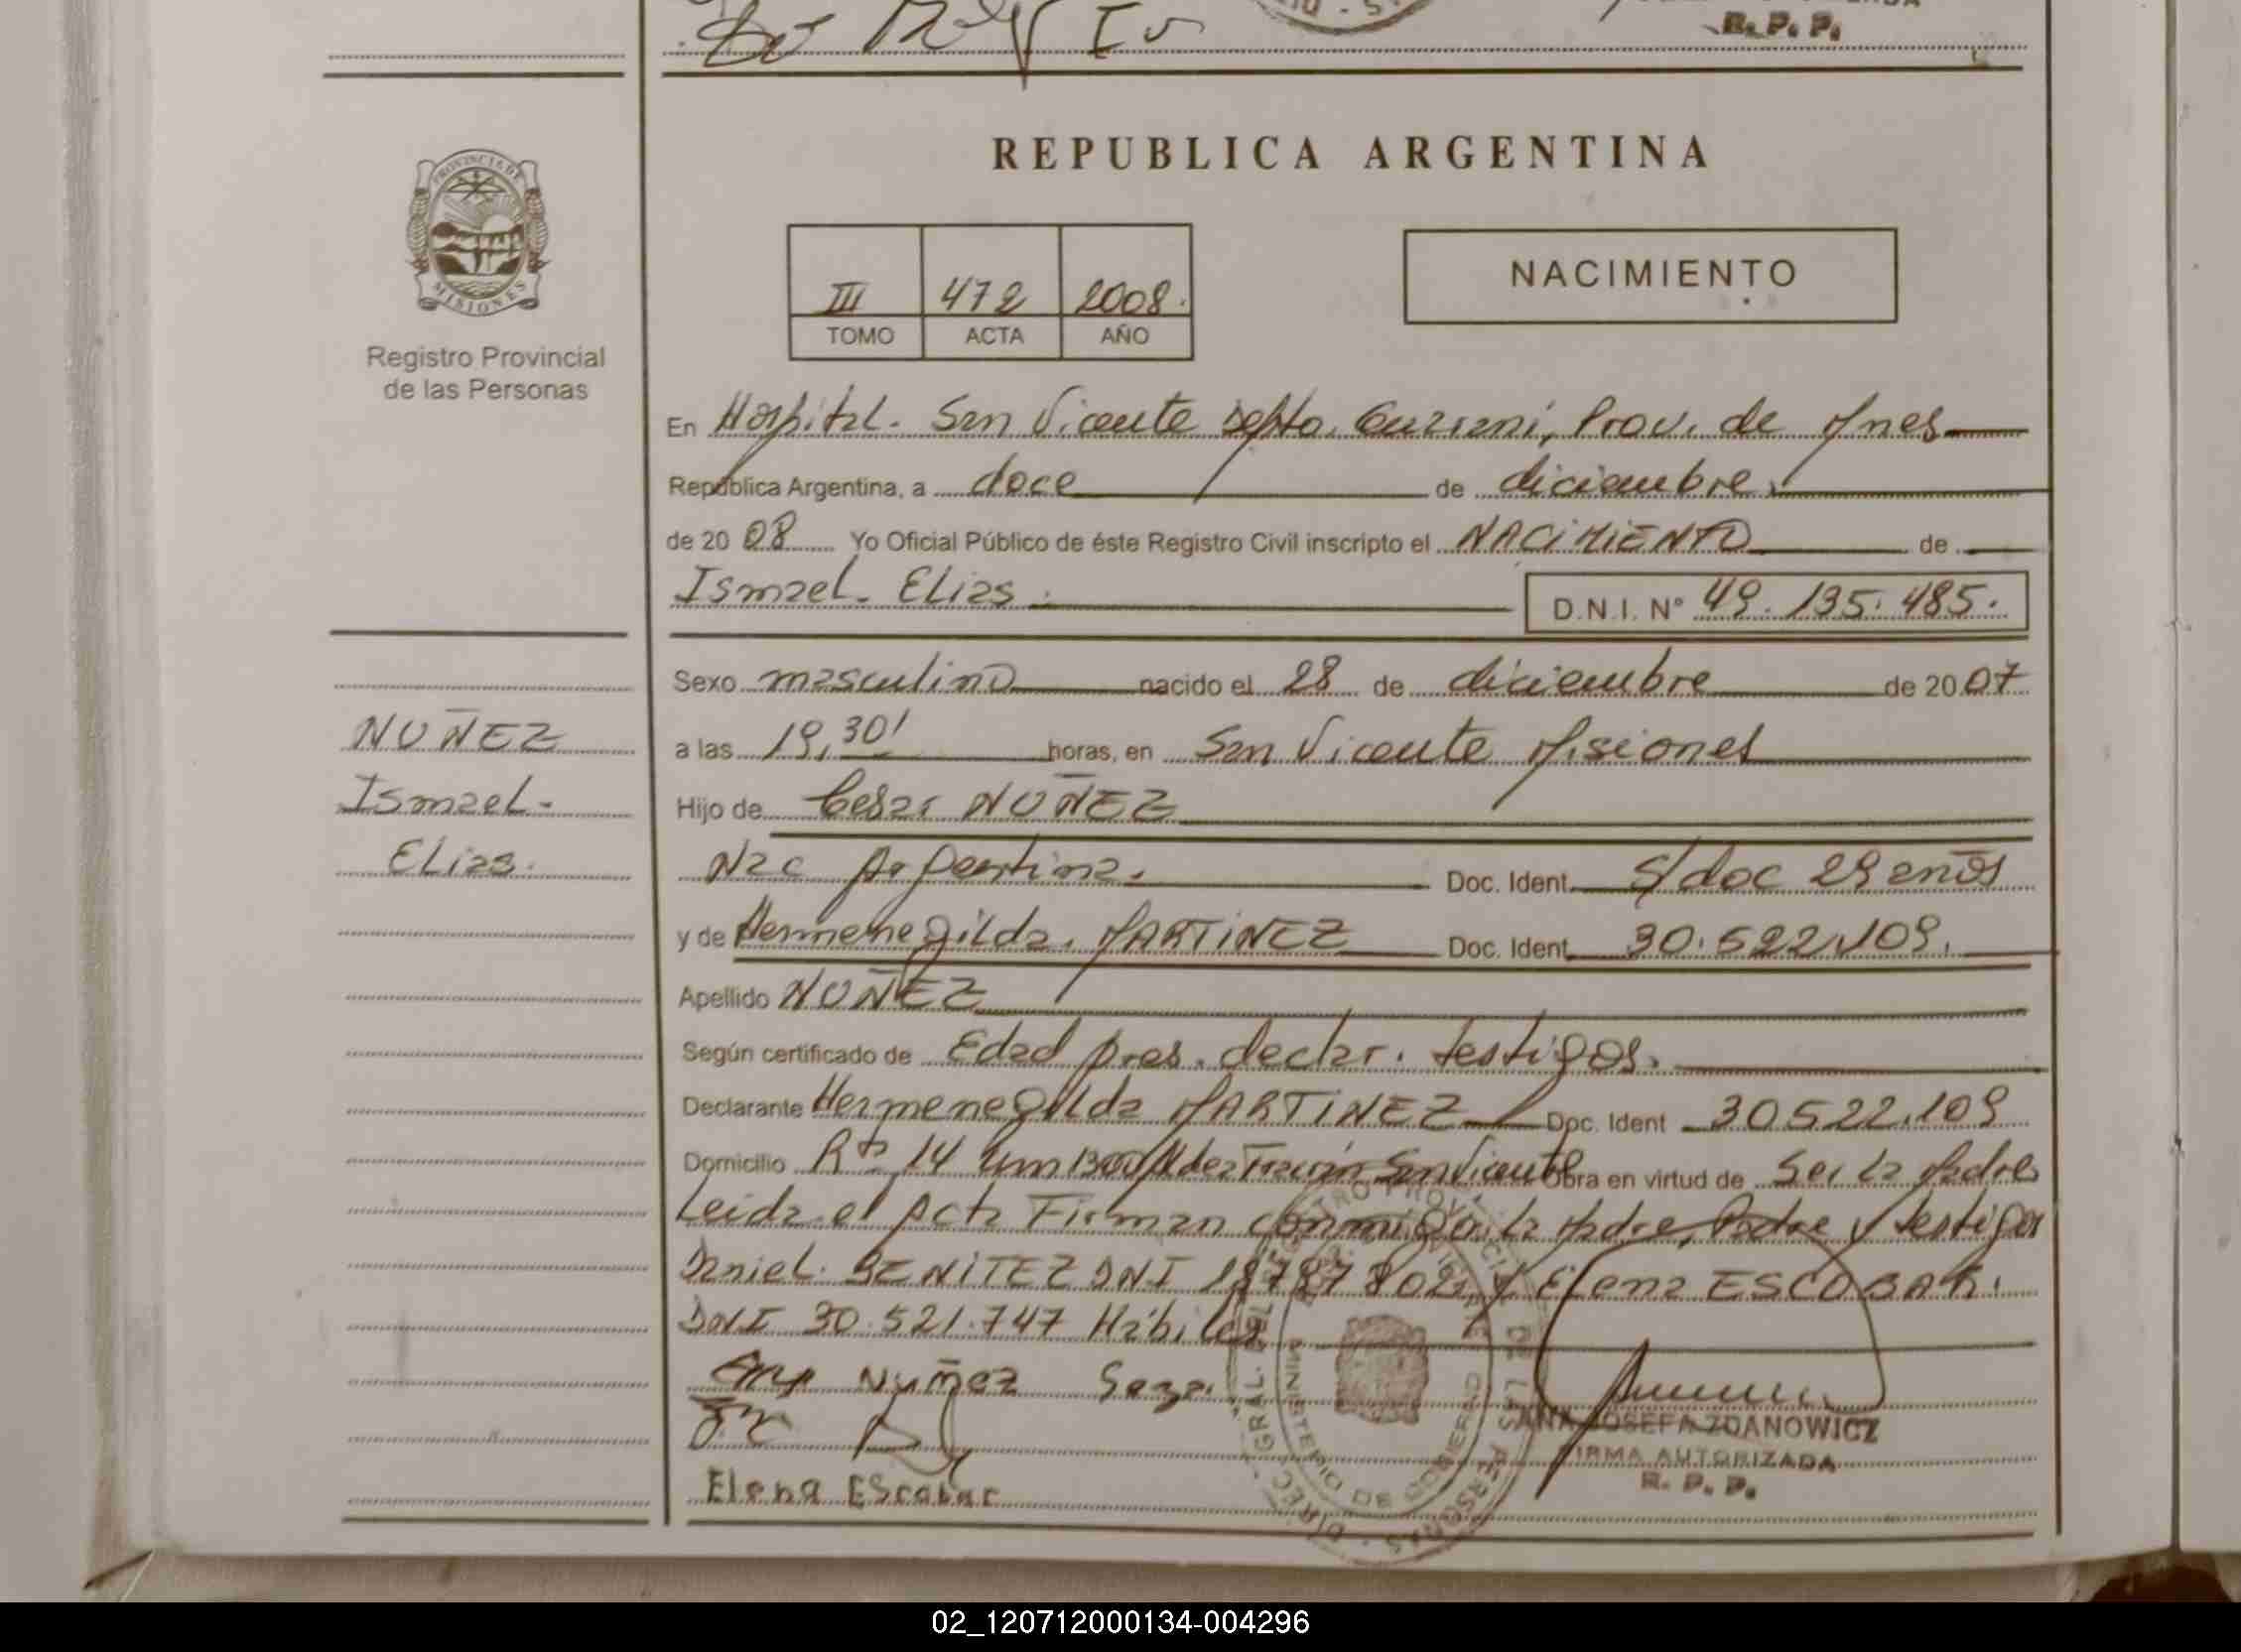 R. P. P.
PROVINCIA DE
MISIONES
Registro Provincial
de las Personas
REPUBLICA ARGENTINA
III 472 2008.
TOMO ACTA AÑO
NACIMIENTO
En Hospital. San Vicente Depto. Guarani, Prov. de Mnes
República Argentina, a doce de diciembre
de 2008 Yo Oficial Público de éste Registro Civil inscripto el NACIMIENTO de
Ismael. Elias.
D.N.I. Nº 49.135.485.
Sexo masculino nacido el 28 de diciembre de 2007
NUÑEZ
Ismael.
Elias.
a las 19,30' horas, en San Vicente Misiones
Hijo de Cesar NUÑEZ
Nac Argentina. Doc. Ident. S/doc 29 años
y de Hermenegilda. MARTINEZ Doc. Ident. 30.522.109.
Apellido NUÑEZ
Según certificado de Edad pres. declar. testigos.
Declarante Hermenegilda MARTINEZ Doc. Ident 30522.109
Domicilio Rta 14 km 1300 San Vicente Obra en virtud de Ser la Madre
Leida el Acta Firman conmigo. la Madre, Padre y testigos
Daniel. BENITEZ DNI 18787802 y Elena ESCOBAR.
DNI 30.521.747 Hábiles
Nuñez Sezar
Elena Escobar
ANA JOSEFA ZDANOWICZ
FIRMA AUTORIZADA
R. P. P.
MINISTERIO DE GOBIERNO
02_120712000134-004296